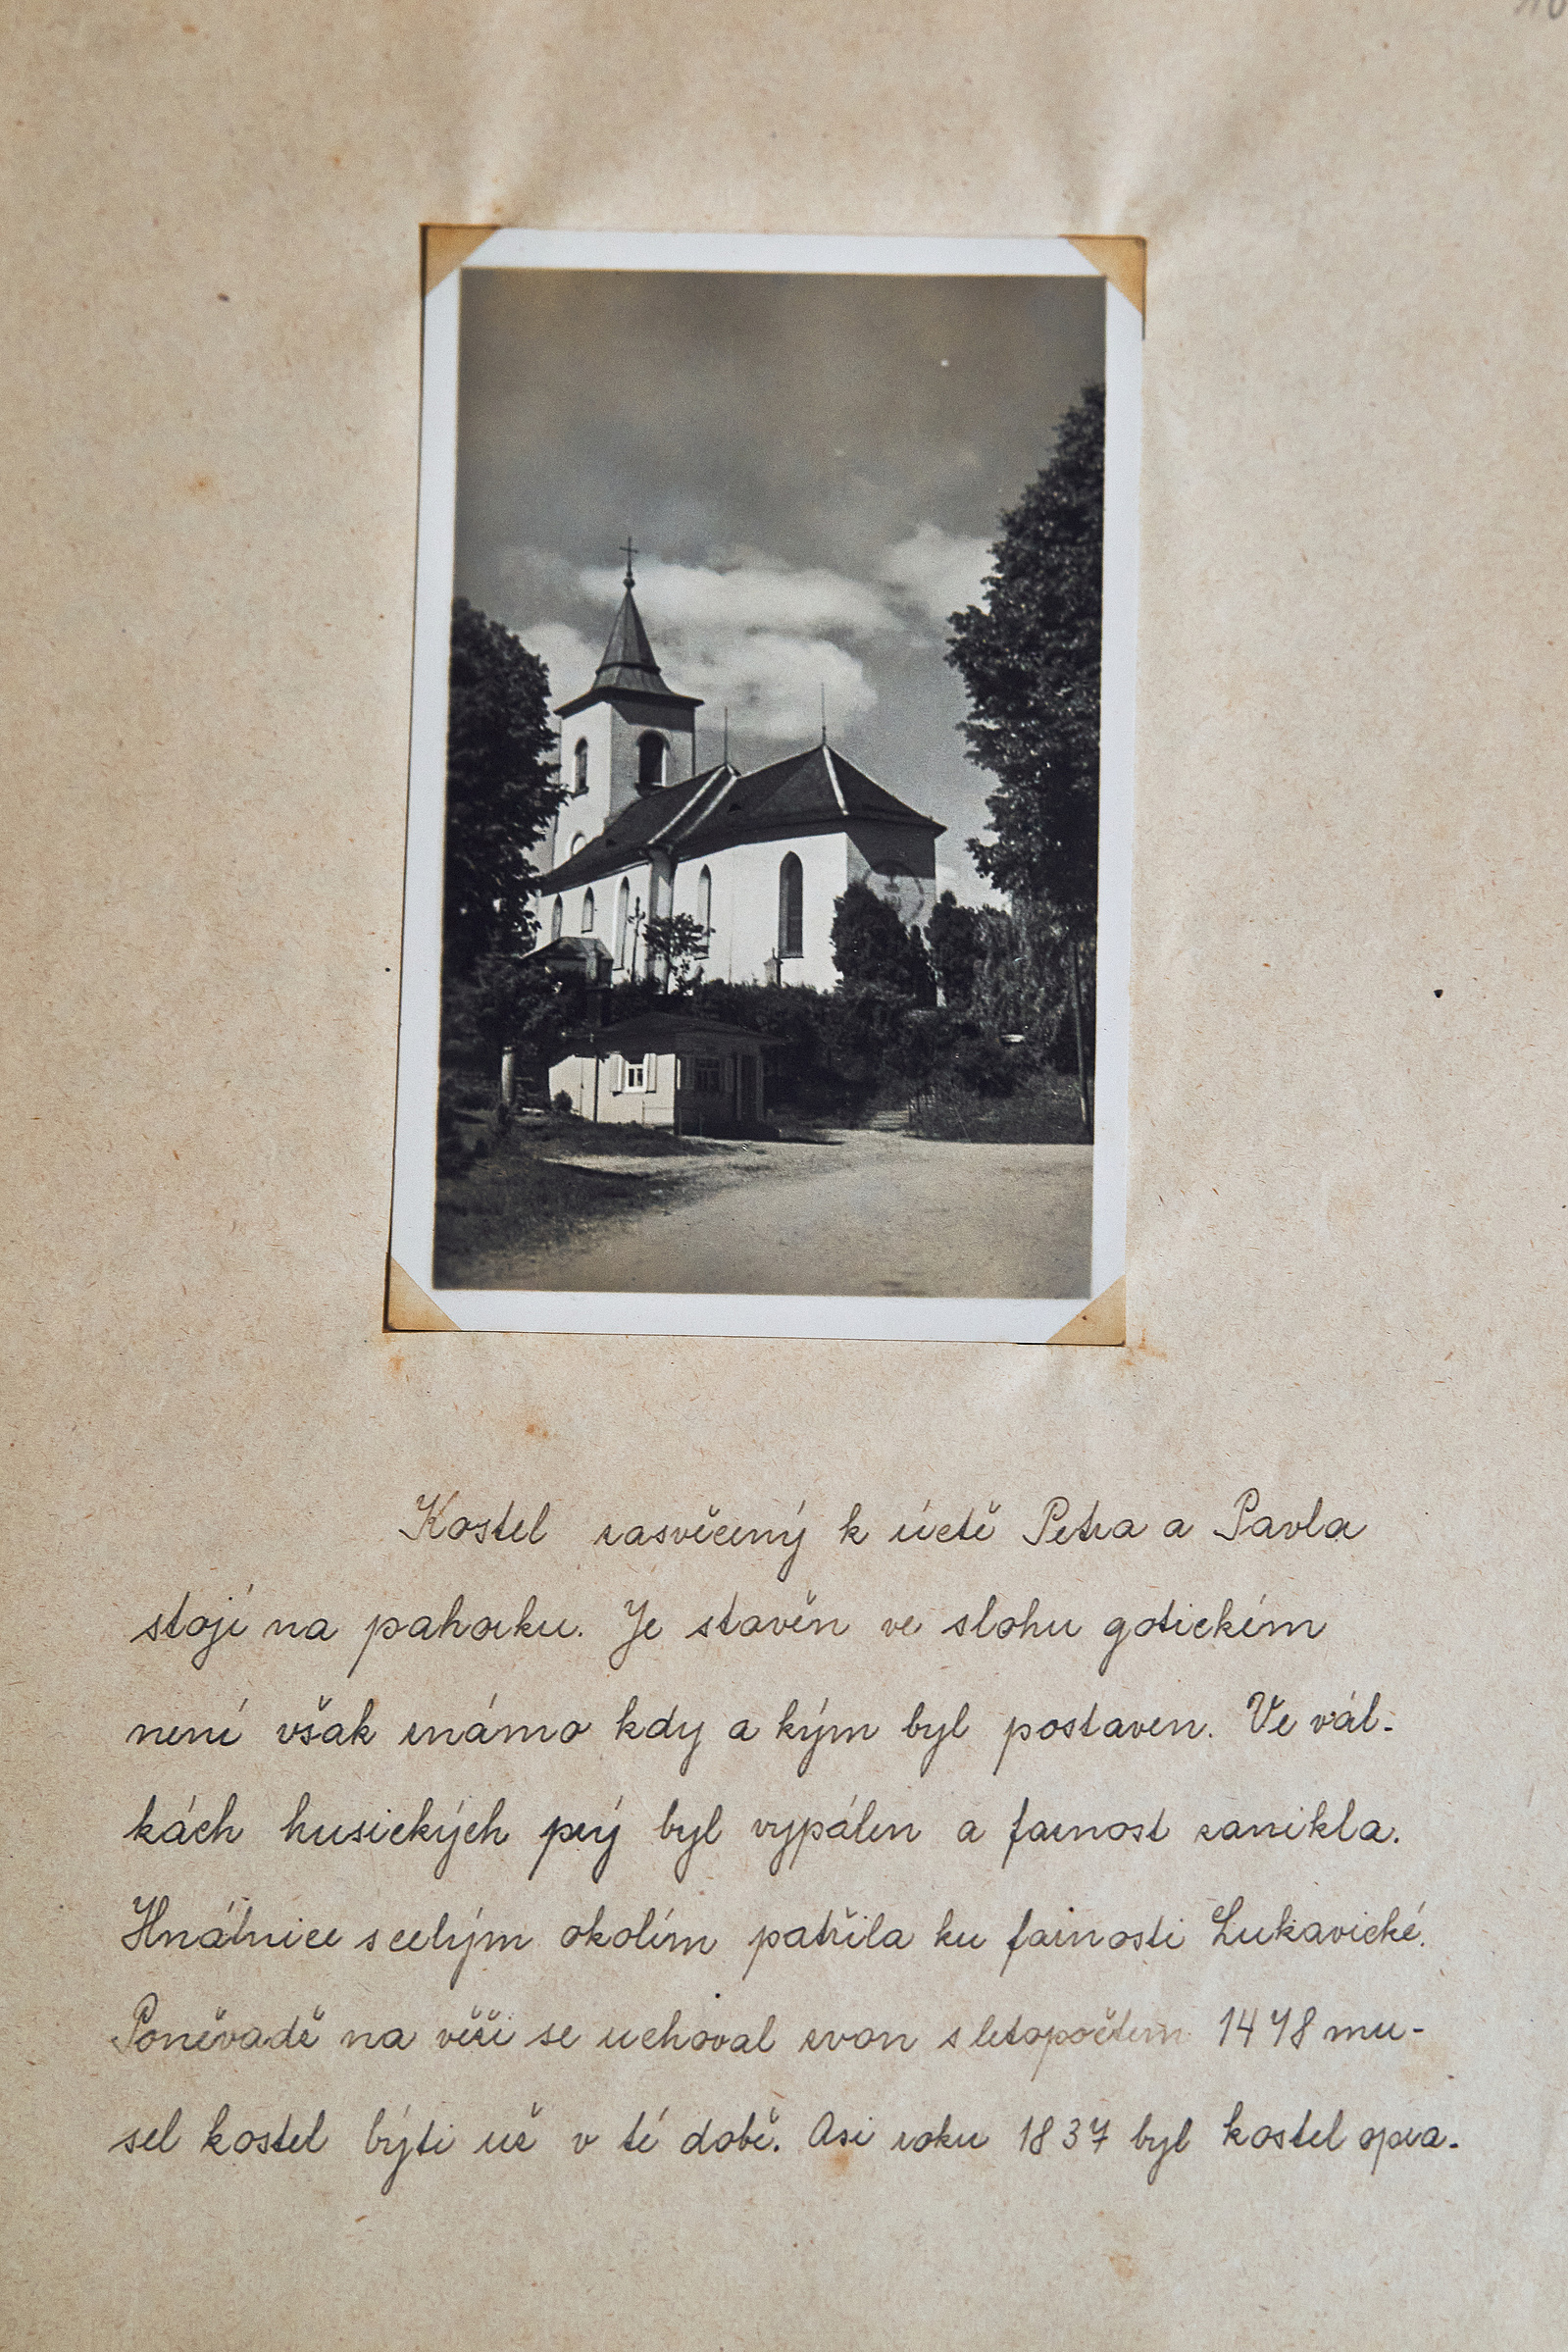 Kostel zasvěcený k úctě Petra a Pavla
stojí na pahorku. Je stavěn ve slohu gotickém
není však známo kdy a kým byl postaven. Ve vál-
kách husických prý byl vypálen a farnost zanikla.
Hnátnice s celým okolím patřila ku farnosti Lukavické.
Poněvadž na věži se uchoval zvon s letopočtem 1478 mu-
sel kostel býti už v té době. Asi roku 1837 byl kostel opra-